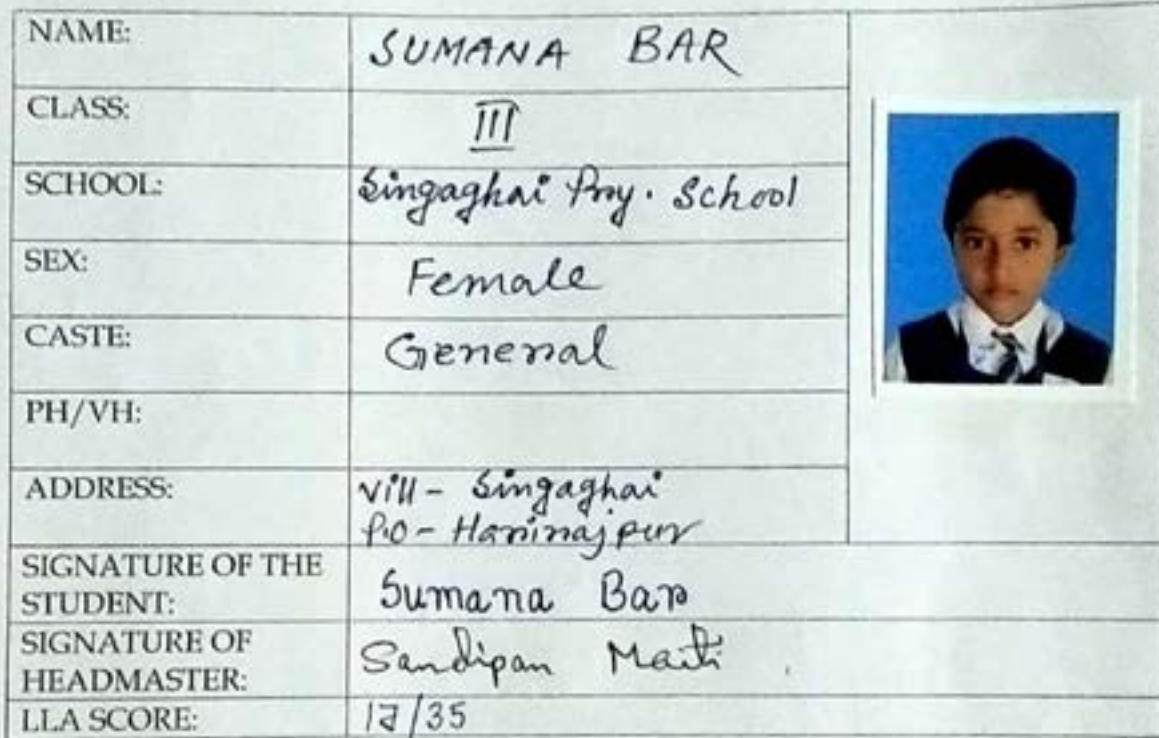 NAME: SUMANA BAR
CLASS: III
SCHOOL: Singaghai Pry. School
SEX: Female
CASTE: General
PH/VH:
ADDRESS: Vill - Singaghai
P.O - Harirajpur
SIGNATURE OF THE STUDENT: Sumana Bar
SIGNATURE OF HEADMASTER: Sandipan Maiti
LLA SCORE: /35